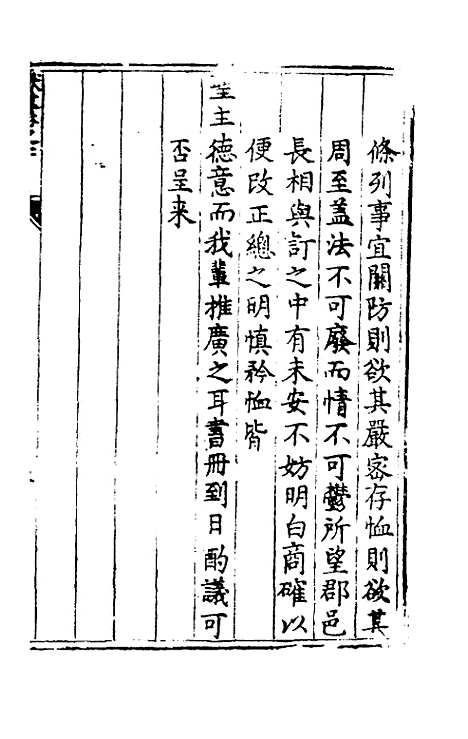 條列事宜關防則欲其嚴密存恤則欲其
周至蓋法不可廢而情不可鬱所望郡邑
長相與訂之中有未安不妨明白商確以
便改正總之明慎矜恤皆
聖主德意而我輩推廣之耳書冊到日酌議可
否呈来